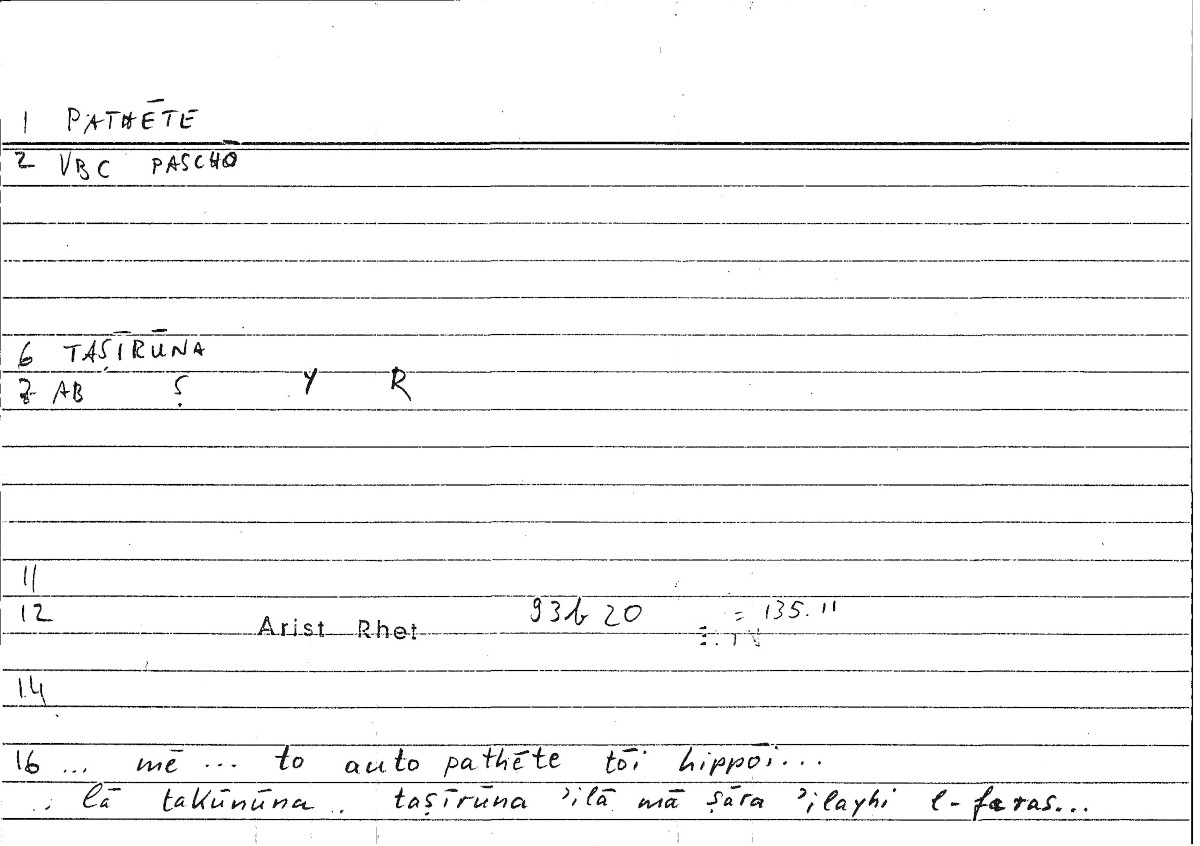 1 PATHĒTE
2 VBC PASCHŌ
6 TAṢĪRŪNA
7 AB Ṣ Y R
11
12 Arist Rhet 93b 20 = 135.11
14
16 ... mē ... to auto pathēte tōi hippōi...
.. lā takūnūna .. taṣīrūna ʾilā mā ṣāra ʾilayhi l-faras...